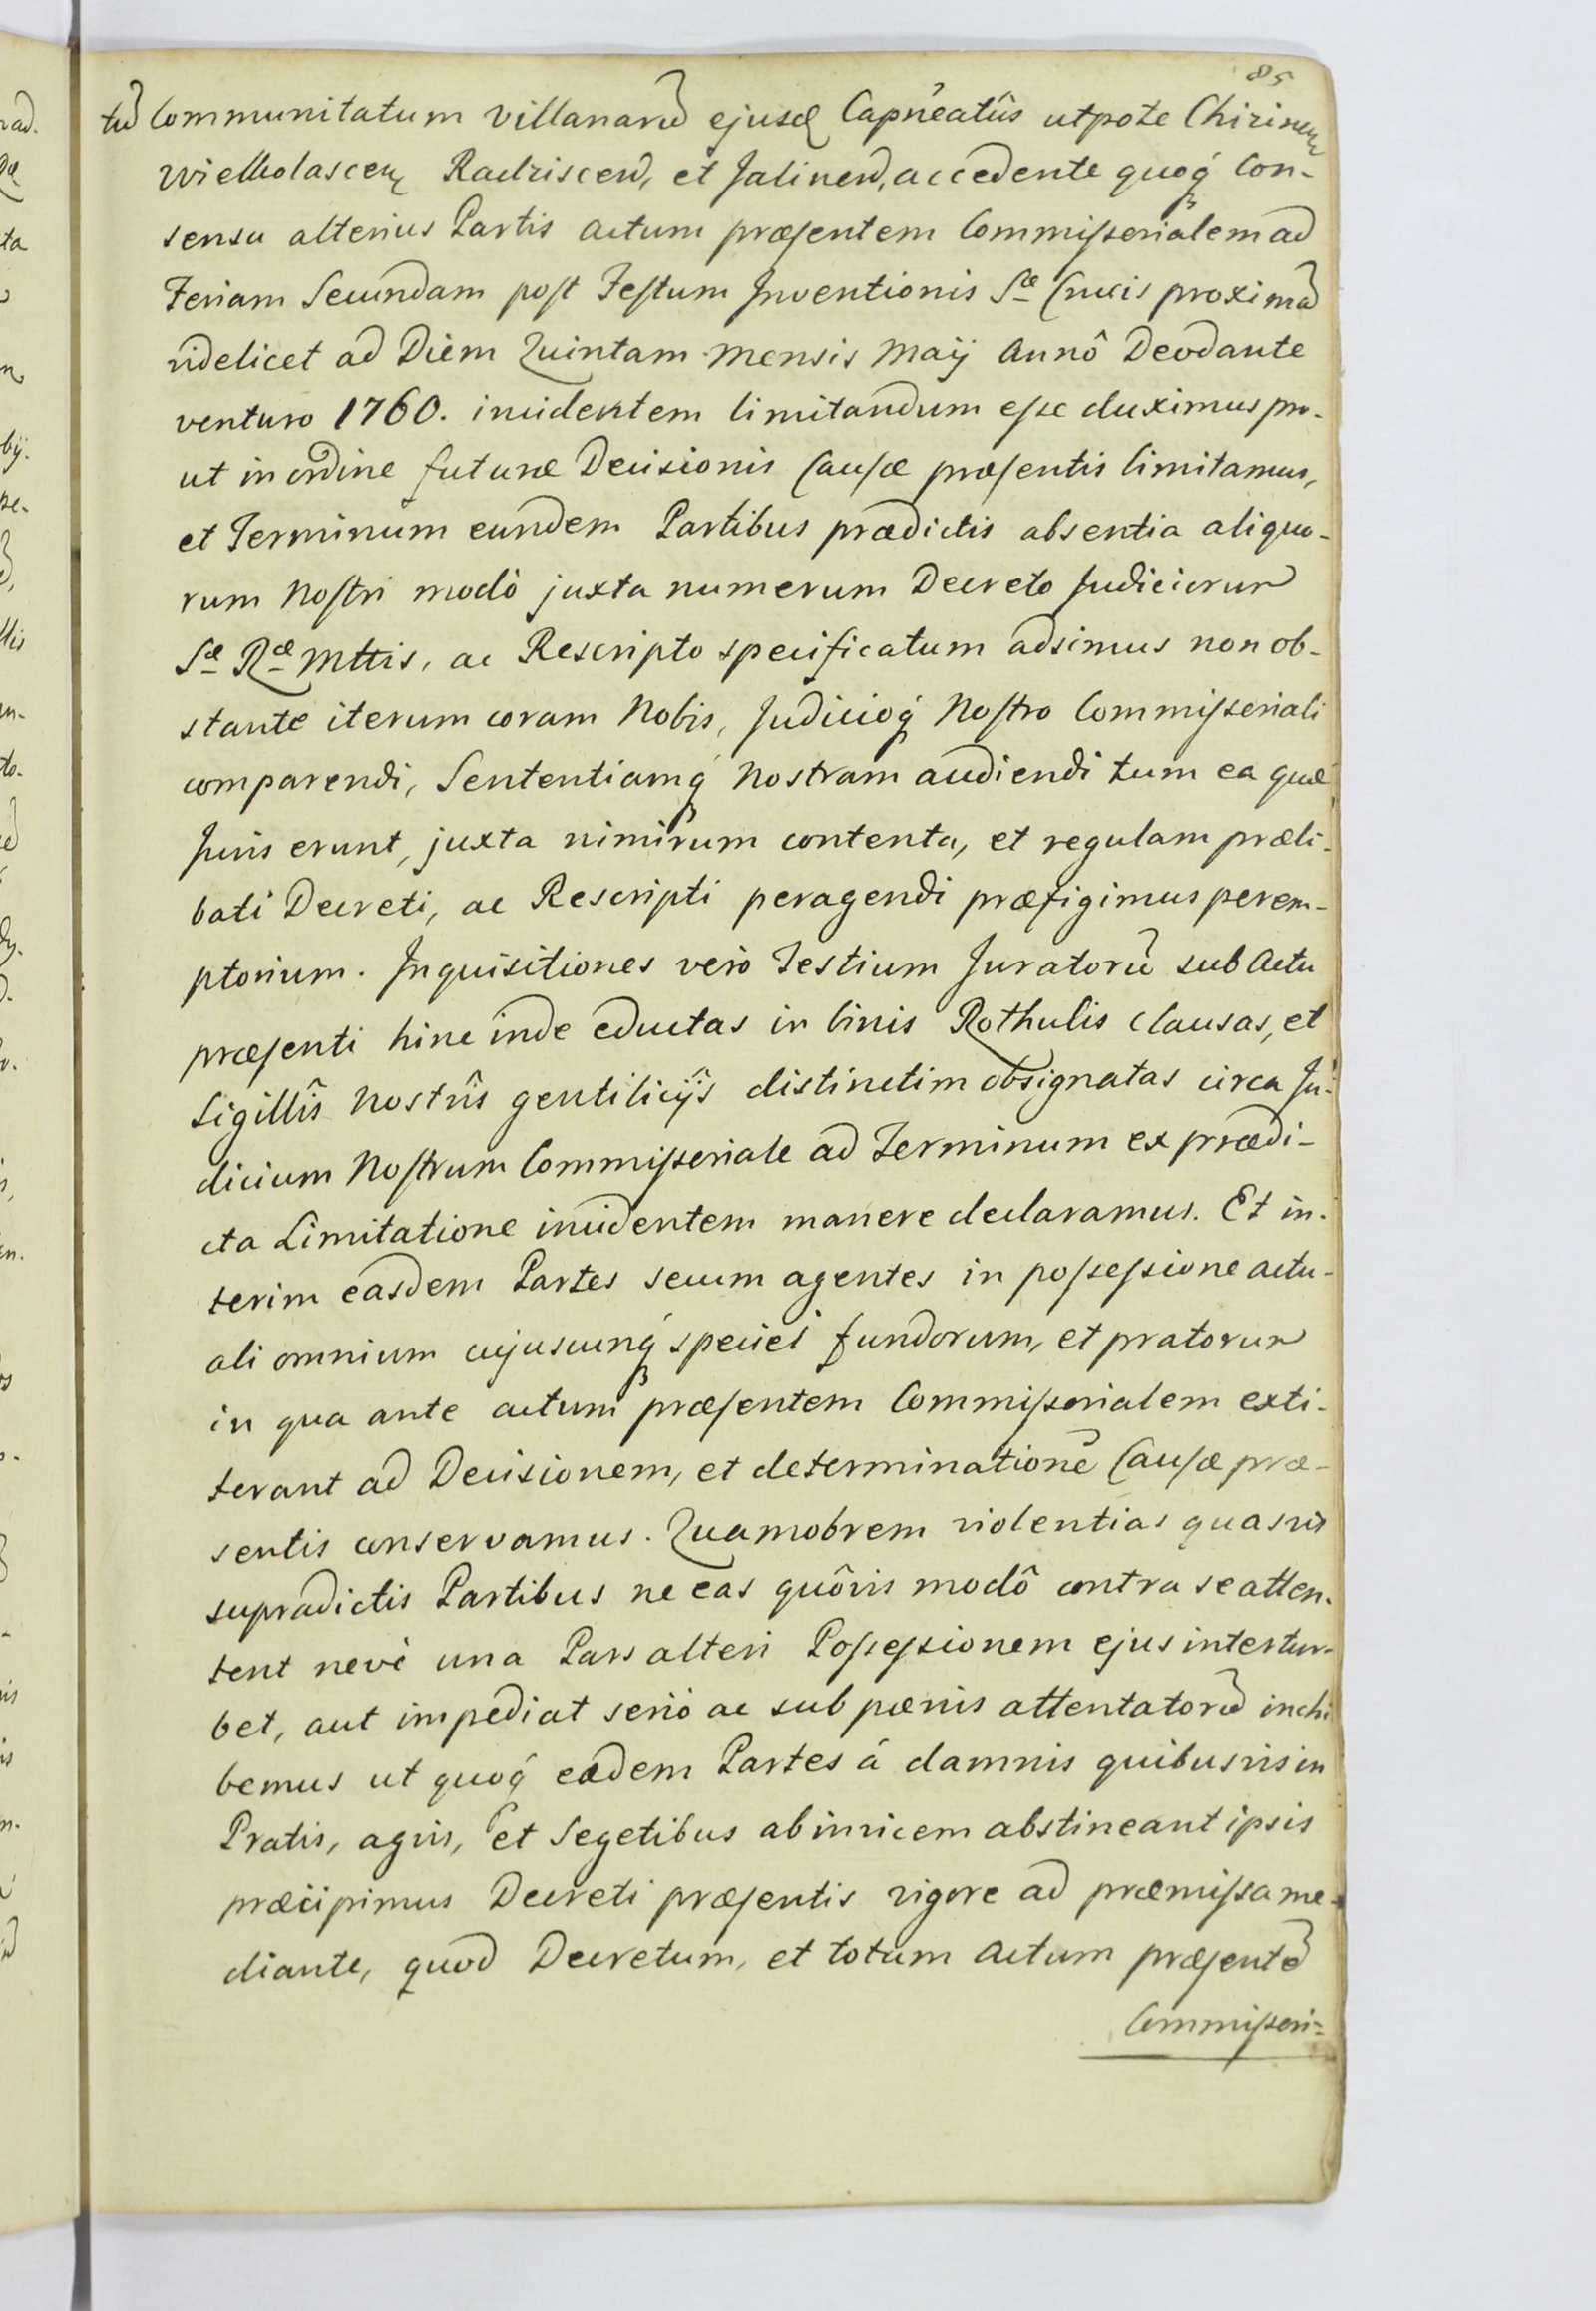 85
tū Communitatum villanarū ejusd Capneatûs utpote Chirinen
Wielholascen Radziscen, et Jalinen, accedente quoq́ Con-
sensu alterius Partis actum præsentem Commissorialem ad
Feriam Secundam post Festum Inventionis Sæ Crucis proximā
videlicet ad Diem Quintam mensis Maij Annô Deodante
venturo 1760. incidentem limitandum esse duximus pro-
ut in ordine futuræ Decisionis Causæ præsentis limitamus,
et Terminum eundem Partibus prædictis absentia aliquo-
rum Nostri modò juxta numerum Decreto Judiciorum
Sæ Ræ Mttis, ac Rescripto specificatum adsimus non ob-
stante iterum coram Nobis, Judicioq́ Nostro Commisseriali
comparendi, Sententiamq́ Nostram audiendi tum ea quæ
Juris erunt, juxta nimirum contenta, et regulam præli-
bati Decreti, ac Rescripti peragendi præfigimus perem-
ptorium. Inquisitiones verò Testium Juratorū sub Actu
præsenti hinc inde eductas in binis Rothulis clausas, et
Sigillîs Nostrîs gentilicijs distinctim obsignatas circa Ju-
dicium Nostrum Commisseriale ad Terminum ex prædi-
cta Limitatione incidentem manere declaramus. Et in-
terim easdem Partes secum agentes in possessione actu-
ali omnium cujuscunq́ speciei fundorum, et pratorum
in qua ante actum præsentem Commissorialem exti-
terant ad Decisionem, et determinationē Causæ præ-
sentis conservamus. Quamobrem violentias quasvis
supradictis Partibus ne eas quôvis modô contra se atten-
tent nevè una Pars alteri Possessionem ejus intertur-
bet, aut impediat seriò ac sub pœnis attentatorū inchi
bemus ut quoq́ eædem Partes á damnis quibusvis in
Pratis, agris, et Segetibus ab invicem abstineant ipsis
præcipimus Decreti præsentis vigore ad præmissa me-
diante, quod Decretum, et totum Actum præsentē
Commisseri=